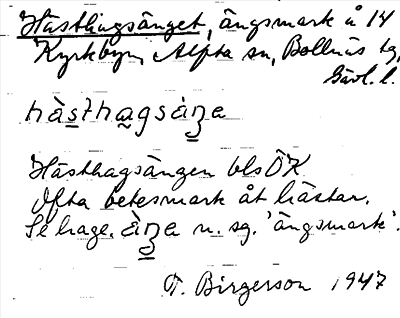 Hästhagsänget, ängsmark å 14
Kyrkbyn, Alfta sn, Bollnäs tg,
Gävl. l.
hàsthagsàŋe
Hästhagsängen bls ÖK.
Ofta betesmark åt hästar.
Se hage. àŋe n. sg. 'ängsmark'.
T. Birgerson 1947